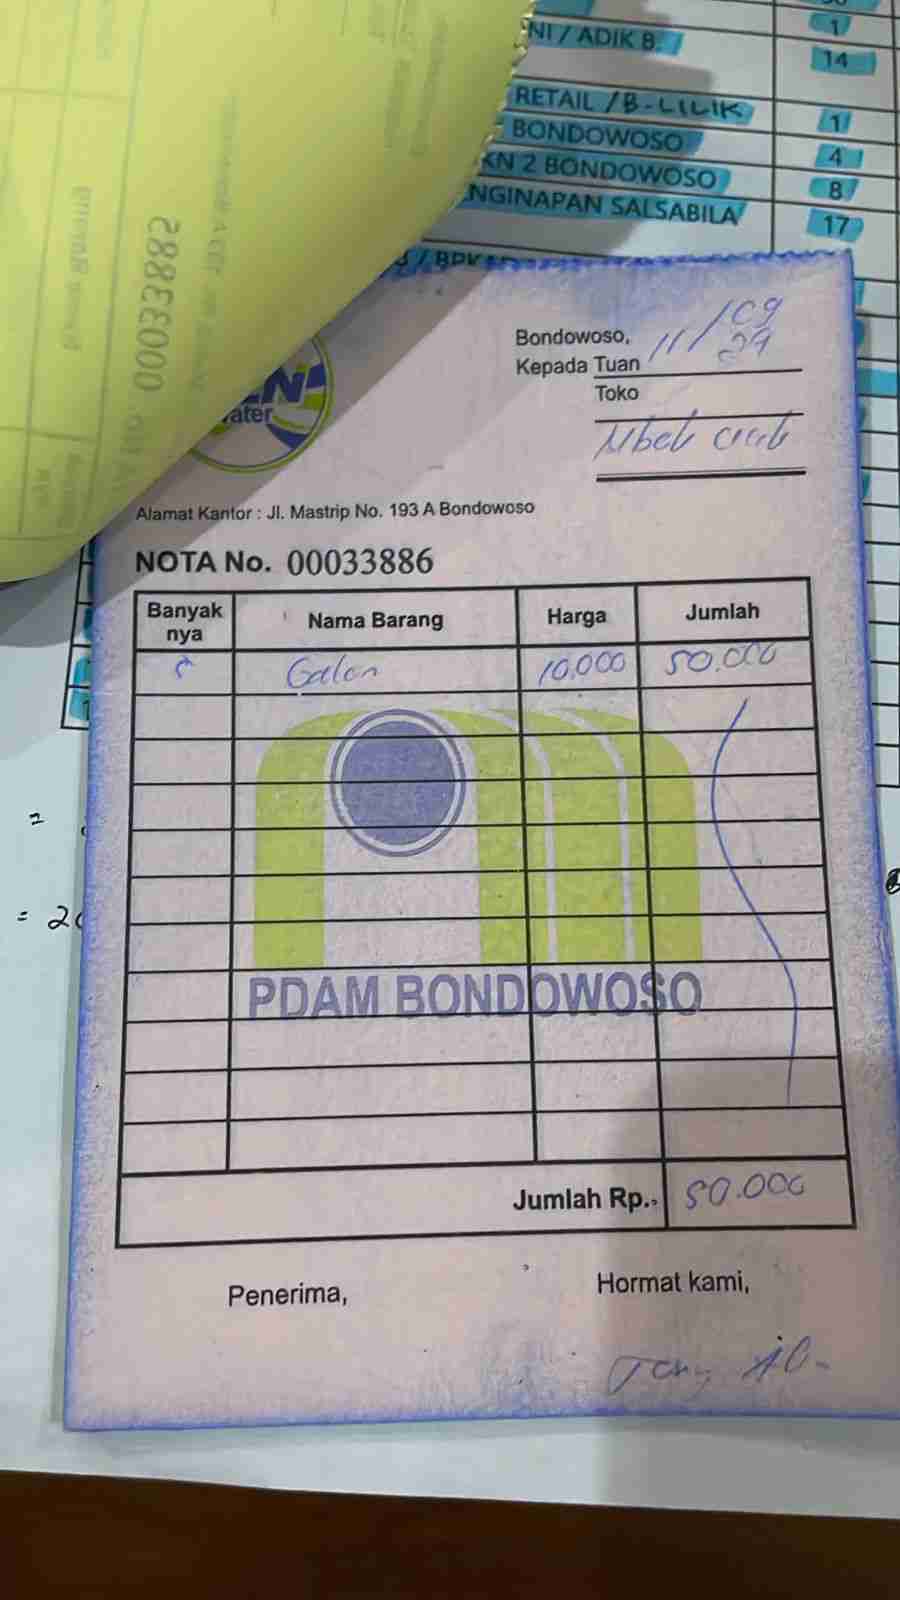 NI / ADIK B.
1
14
RETAIL / B-LILIK
1
BONDOWOSO
4
KN 2 BONDOWOSO
8
NGINAPAN SALSABILA
17
00033885
ater
Bondowoso, 11/09
24
Kepada Tuan
Toko
Mbak
Alamat Kantor : Jl. Mastrip No. 193 A Bondowoso
NOTA No. 00033886
Banyak nya Nama Barang Harga Jumlah
5 Galon 10.000 50.000
PDAM BONDOWOSO
Jumlah Rp. 50.000
Penerima, Hormat kami,
=
= 20